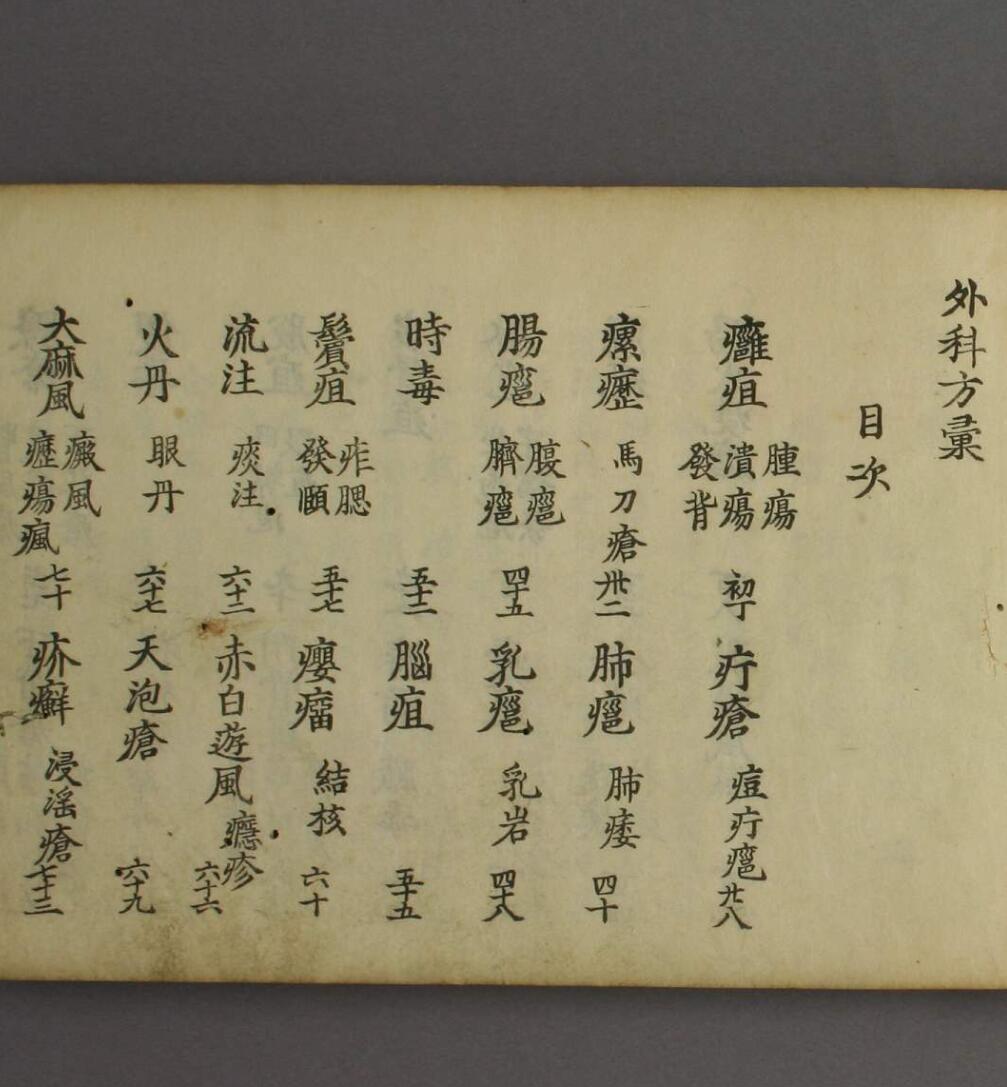 外科方彙
目次
癰疽 腫瘍 潰瘍 發背 初丁 疔瘡 痘疔癰 廿八
瘰癧 馬刀瘡 卅二 肺癰 肺痿 四十
腸癰 腹癰 臍癰 四十五 乳癰 乳岩 四十八
時毒 五十二 腦疽 五十五
鬢疽 痄腮 發頤 五十七 癭瘤 結核 六十
流注 痰注 六十二 赤白遊風 癮疹 六十六
火丹 眼丹 六十七 天泡瘡 六十九
大麻風 癜風 癧瘍瘋 七十 疥癬 浸淫瘡 七十三